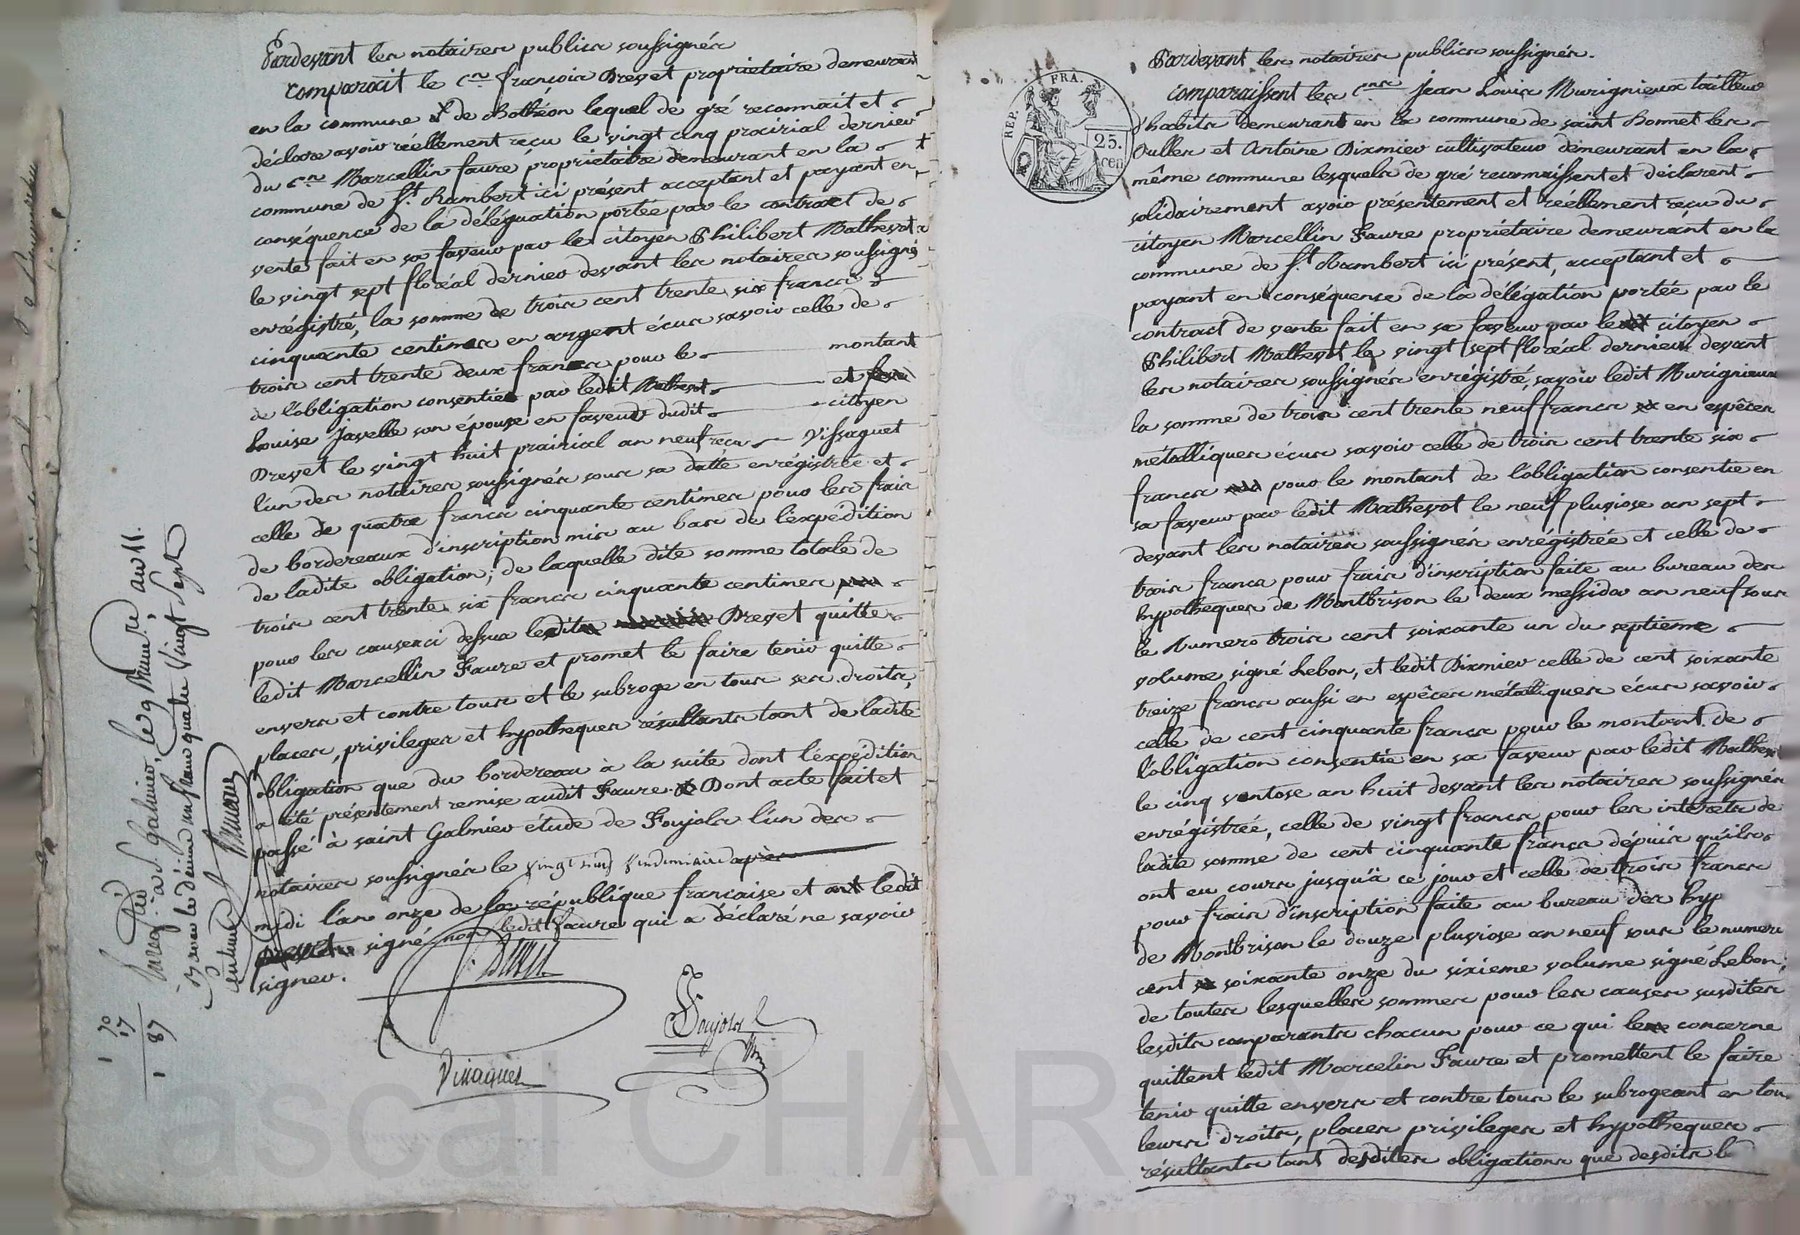 Pardevant les notaires publics soussignés
comparait le cen françois Drevet propriétaire demeurant
en la commune de chothéon lequel de gré reconnait et
déclare avoir réellement reçu le vingt cinq prairial dernier
du cen Marcellin faure propriétaire demeurant en la
commune de St. Rambert ici présent acceptant et payant en
conséquence de la déléguation portée par le contract de
vente fait en sa faveur par le citoyen Philibert Mathevot
le vingt sept floréal dernier devant les notaires soussignés
enrégistré, la somme de trois cent trente six francs
cinquante centimes en argent écus savoir celle de
trois cent trente deux francs pour le montant
de l'obligation consentie par ledit Mathevot et
Louise Javelle son épouse en faveur dudit citoyen
Drevet le vingt huit prairial an neuf reçu Vissaguet
l'un des notaires soussignés sous sa datte enrégistrée et
celle de quatre francs cinquante centimes pour les frais
de bordereaux d'inscription mis au bas de l'expédition
de ladite obligation; de laquelle dite somme totale de
trois cent trente six francs cinquante centimes
pour les causes ci dessus ledit Drevet quitte
ledit Marcellin Faure et promet le faire tenir quitte
envers et contre tous et le subroge en tous ses droits,
places, privileges et hypotheques résultants tant de ladite
obligation que du bordereau à la suite dont l'expédition
a été présentement remise audit Faure. Dont acte fait et
passé à saint Galmier étude de Foujols l'un des
notaires soussignés le vingt neuf vendemiaire après
midi l'an onze de la république française et ledit
signé non ledit faure qui a déclaré ne savoir
signer.
Drevet
Foujols
Vissaguet
Enregistré à St. Galmier, le 9 Brumre, an 11.
centimes
1 70
17
1 87
REP. FRA.
25.
cen
Pardevant les notaires publics soussignés.
comparaissent les cens Jean Louis Murignieux tailleur
d'habits demeurant en la commune de saint Bonnet les
Oulles et Antoine Dixmier cultivateur demeurant en la
même commune lesquels de gré reconnaissent et déclarent
solidairement avoir présentement et réellement reçu du
citoyen Marcellin Faure propriétaire demeurant en la
commune de St. Rambert ici présent, acceptant et
payant en conséquence de la délégation portée par le
contract de vente fait en sa faveur par le citoyen
Philibert Mathevot le vingt sept floréal dernier devant
les notaires soussignés enrégistré, savoir ledit Murignieux
la somme de trois cent trente neuf francs en espèces
métalliques écus savoir celle de trois cent trente six
francs pour le montant de l'obligation consentie en
sa faveur par ledit Mathevot le neuf pluviose an sept
devant les notaires soussignés enrégistrée et celle de
trois francs pour frais d'inscription faite au bureau des
hypotheques de Montbrison le deux messidor an neuf sous
le Numero trois cent soixante un du septieme
volume signé Lebon, et ledit Dixmier celle de cent soixante
treize francs aussi en espèces métalliques écus savoir
celle de cent cinquante francs pour le montant de
l'obligation consentie en sa faveur par ledit Mathevot
le cinq ventose an huit devant les notaires soussignés
enrégistrée, celle de vingt francs pour les interets de
ladite somme de cent cinquante francs dépuis qu'ils
ont eu cours jusqu'à ce jour et celle de trois francs
pour frais d'inscription faite au bureau des hyp
de Montbrison le douze pluviose an neuf sous le numero
cent soixante onze du sixieme volume signé Lebon;
de toutes lesquelles sommes pour les causes susdites
lesdits comparants chacun pour ce qui le concerne
quittent ledit Marcelin Faure et promettent le faire
tenir quitte envers et contre tous le subrogeant en tous
leurs droits, places privileges et hypotheques
résultants tant desdites obligations que desdits b
Pascal CHAR